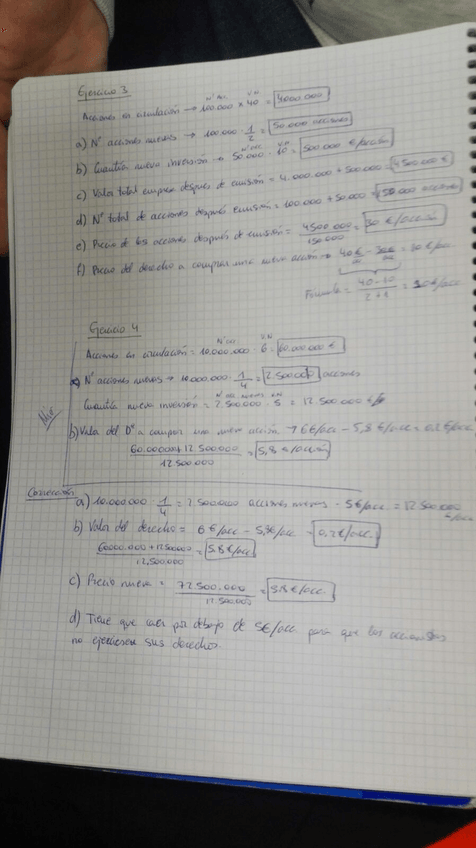 Ejercicio 3
Nº acc. V.N
Acciones en circulación → 100.000 x 40 = 4000.000
a) Nº acciones nuevas → 100.000 · 1/2 = 50.000 acciones
Nº acc. V.N
b) Cuantía nueva inversión → 50.000 · 10 = 500.000 €/acción
c) Valor total empresa después de emisión = 4.000.000 + 500.000 = 4500.000 €
d) Nº total de acciones después emisión = 100.000 + 50.000 = 150.000 acciones
e) Precio de las acciones después de emisión = 4500.000 / 150.000 = 30 €/acción
f) Precio del derecho a comprar una nueva acción → 40 €/acc - 30 €/acc = 10 €/acc
Fórmula = 40-10 / 2+1 = 10 €/acc
Ejercicio 4
Nº acc V.N
Acciones en circulación = 10.000.000 · 6 = 60.000.000 €
a) Nº acciones nuevas → 10.000.000 · 1/4 = 2.500.000 acciones
Nº acc nuevas V.N
Cuantía nueva inversión = 2.500.000 · 5 = 12.500.000
b) Valor del Dº a comprar una nueva acción → 6 €/acc - 5,8 €/acc = 0,2 €/acc
60.000.000 + 12.500.000 / 12.500.000 = 5,8 €/acción
Corrección
a) 10.000.000 · 1/4 = 2.500.000 acciones nuevas · 5 €/acc = 12.500.000
b) Valor del derecho = 6 €/acc - 5,8 €/acc = 0,2 €/acc.
60000.000 + 12500.000 / 12,500.000 = 5.8 €/acc
c) Precio nueva = 72.500.000 / 12.500.000 = 5,8 €/acc.
d) Tiene que caer por debajo de 5€/acc para que los accionistas
no ejerciesen sus derechos.